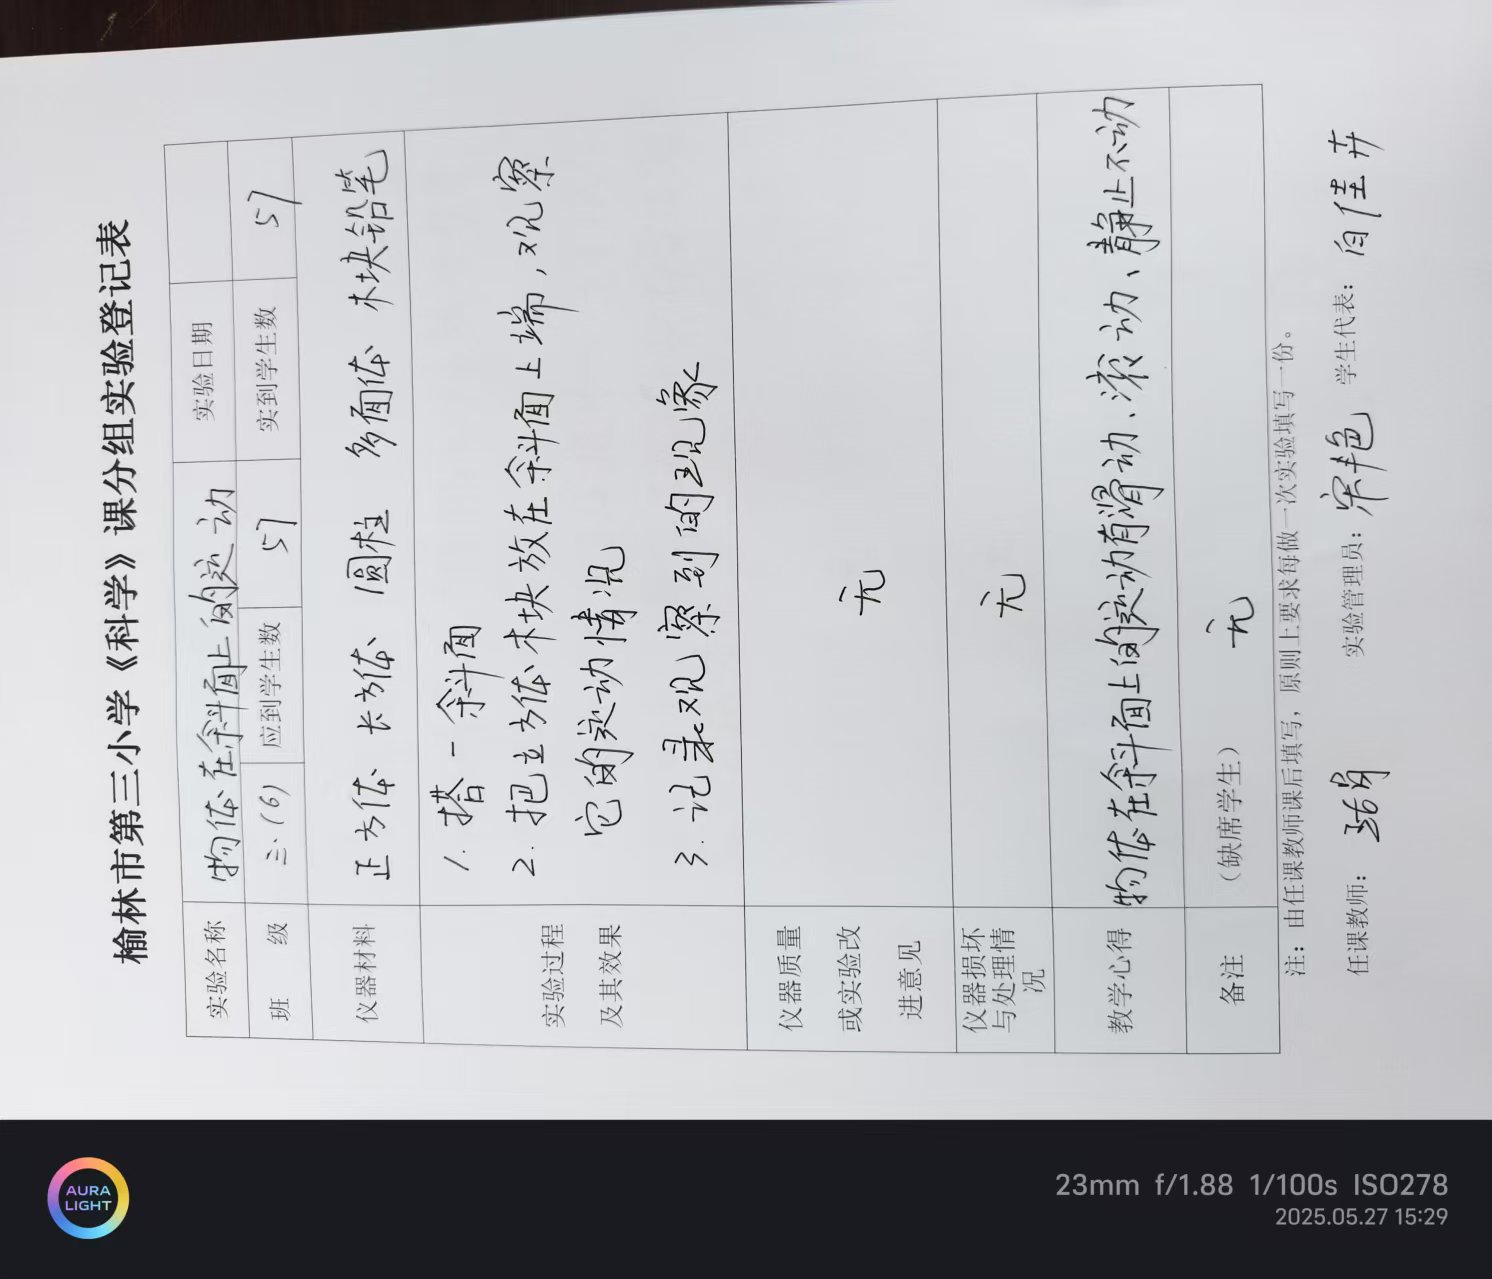 榆林市第三小学《科学》课分组实验登记表
实验名称 物体在斜面上的运动 实验日期
班 级 三.(6) 应到学生数 57 实到学生数 57
仪器材料 正方体 长方体 圆柱 多面体 木块铅笔
实验过程及其效果
1. 搭一斜面
2. 把立方体木块放在斜面上端,观察
它的运动情况
3. 记录观察到的现象
仪器质量
或实验改
进意见
无
仪器损坏
与处理情
况
无
教学心得 物体在斜面上的运动有滑动、滚动、静止不动
备注 (缺席学生) 无
注:由任课教师课后填写,原则上要求每做一次实验填写一份。
任课教师: 实验管理员: 学生代表:
AURA
LIGHT
23mm f/1.88 1/100s ISO278
2025.05.27 15:29